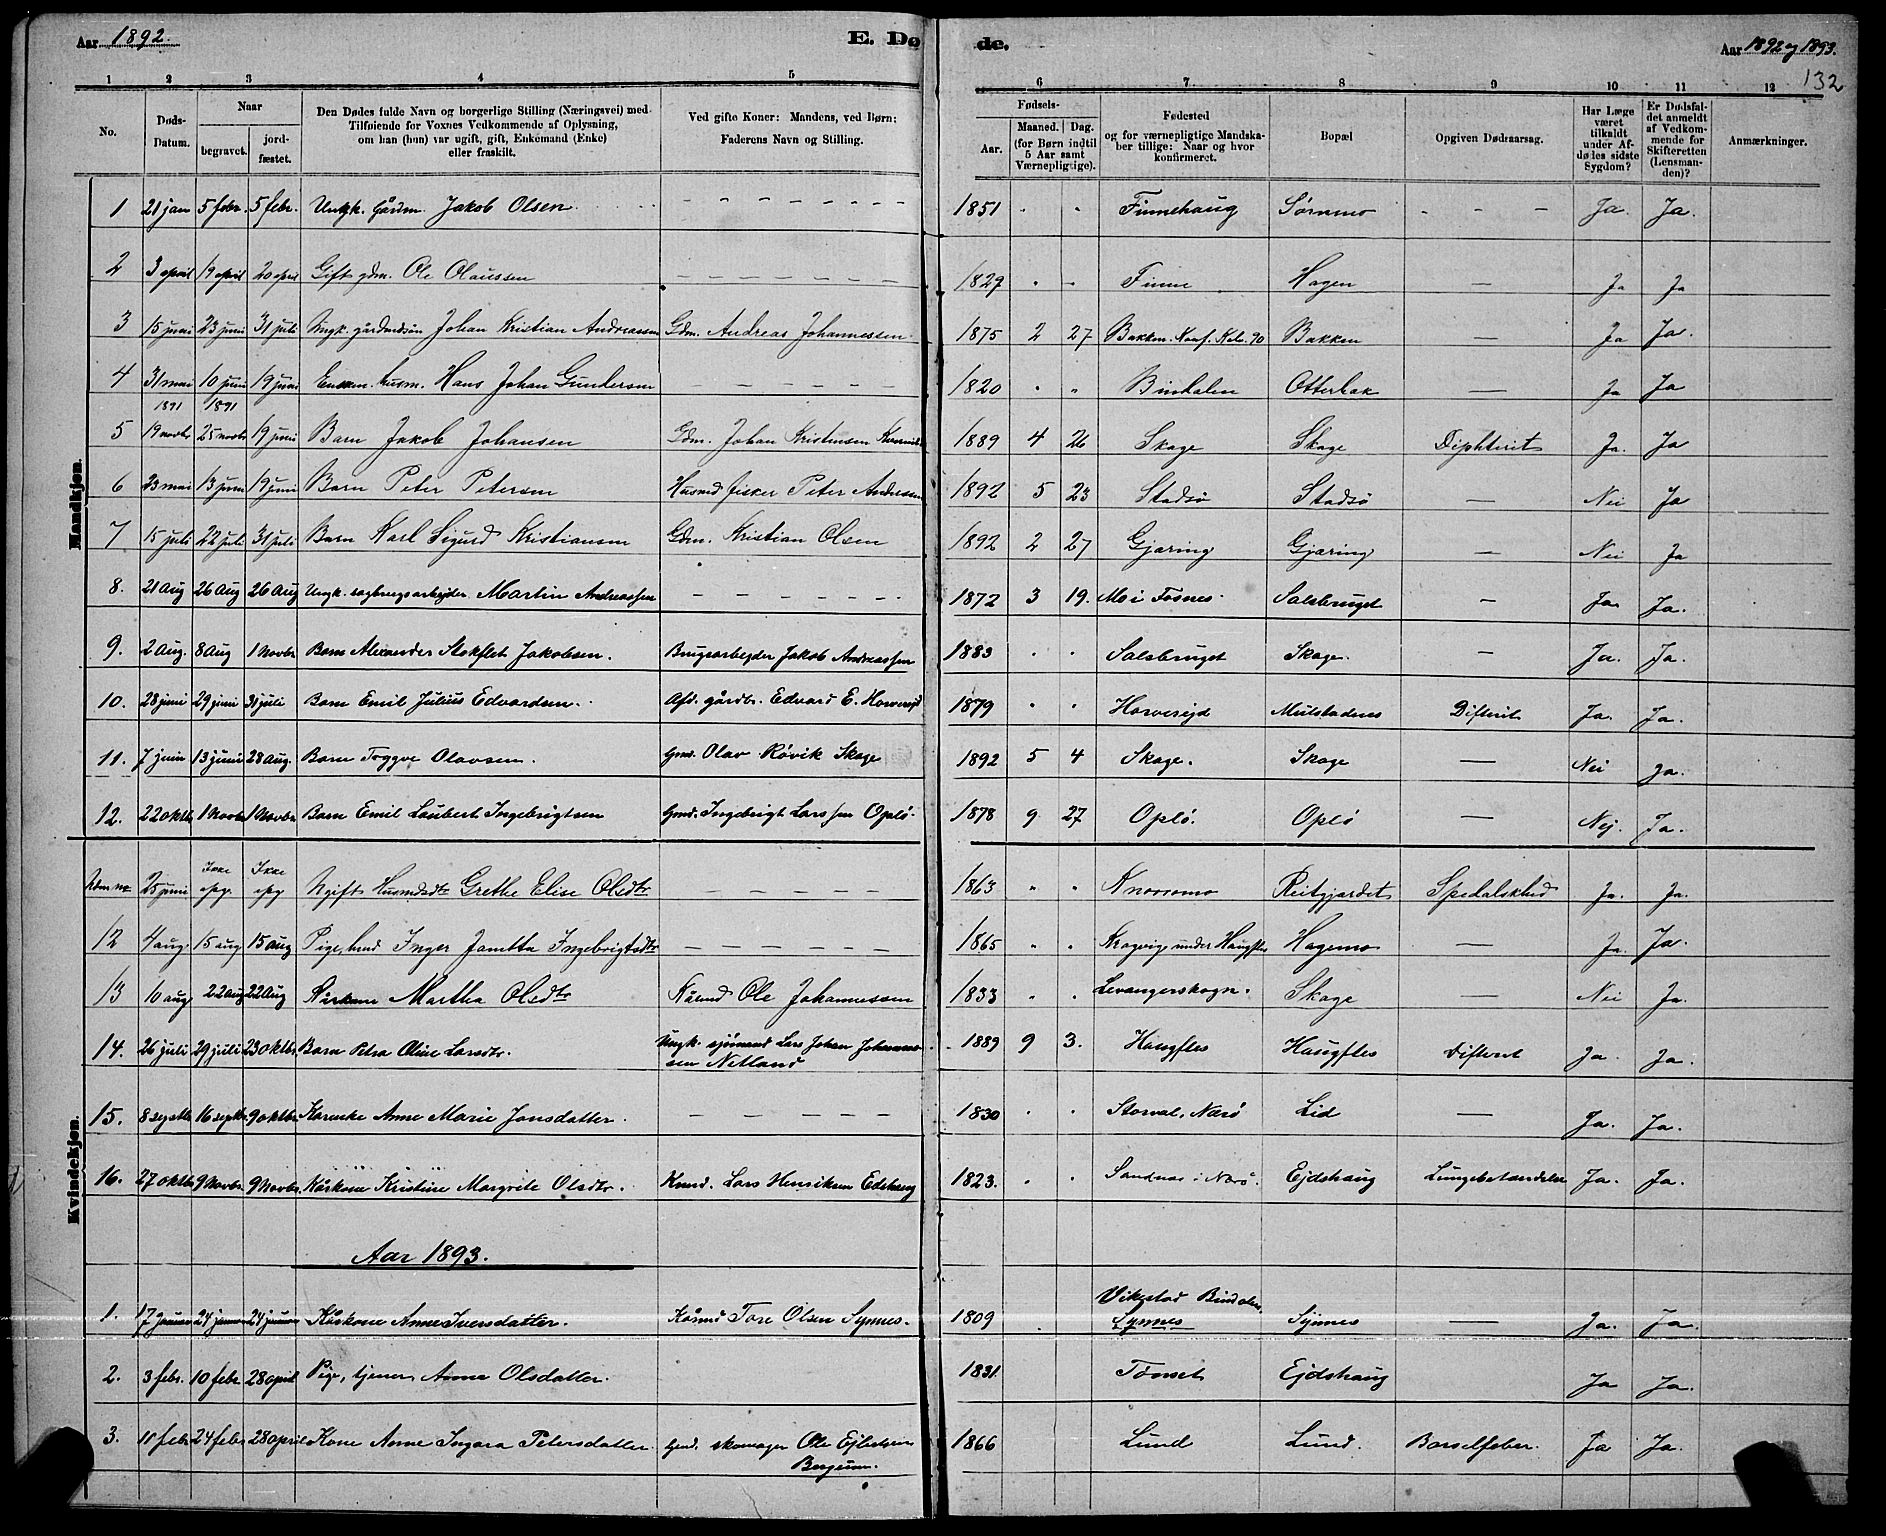 Aar 1892.
E. Dø
de.
Aar 1892 og 1893.
132
1 2 3 4 5 6 7 8 9 10 11 12
No.
Døds-Datum.
Naar
begravet.
jord-fæstet.
Den Dødes fulde Navn og borgerlige Stilling (Næringsvei) med
Tilføiende for Voxnes Vedkommende af Oplysning,
om han (hun) var ugift, gift, Enkemand (Enke)
eller fraskilt.
Ved gifte Koner: Mandens, ved Børn:
Faderens Navn og Stilling.
Fødsels-
Aar.
Maaned. Dag.
(for Børn indtil
5 Aar samt
Værnepligtige).
Fødested
og for værnepligtige Mandska-
ber tillige: Naar og hvor
konfirmeret.
Bopæl
Opgiven Dødsaarsag.
Har Læge
været
tilkaldt
under Af-
dødes sidste
Sygdom?
Er Dødsfal-
det anmeldt
af Vedkom-
mende for
Skifteretten
(Lensman-
den)?
Anmærkninger.
Mandkjøn.
1 21 jan 5 febr. 5 febr. Ungk. Gårdm. Jakob Olsen. - - - - - - - - 1851 " " Finnehaug Sørmmo - - - Ja. Ja.
2 3 april 19 april 20 april Gift gdm. Ole Olaussen - - - - - - 1827 " " Finne Hagen — Ja Ja
3 15 juni 23 juni 31 juli Ungk. gårdmdsön Johan Kristian Andreassen Gdm. Andreas Johannessen. 1875 2 27 Bakken. Konf. Kolv. 90 Bakken — Ja Ja.
4 31 mai 10 juni 19 juni Enkem. husm. Hans Johan Gundersen - - - - - - 1820 " " Bindalen Otterbak — Ja Ja
1891 1891
5 19 novbr 25 novbr 19 juni Barn Jakob Johansen Gdm. Johan Kristensen 1889 4 26 Skage Skage Diphterit Ja. Ja
6 23 mai 13 juni 19 juni Barn Peter Petersen Husmd fisker Peter Andersen 1892 5 23 Stadsö Stadsö — Nei Ja
7 15 juli 22 juli 31 juli Barn Karl Sigurd Kristiansen Gdm. Kristian Olsen 1892 2 27 Gjæring Gjæring — Nei Ja
8. 21 Aug 26 Aug 26 Aug Ungk. sagbrugsarbejder Martin Andreassen - - - - - - 1872 3 19. Mo i Fosnes. Salsbruget — Ja. Ja.
9. 2 Aug. 8 Aug 1 Novbr Barn Alexander Stokflet Jakobsen. Brugsarbejder Jakob Andreassen 1883 " " Salsbruget Skage. — Ja. Ja.
10. 28 juni 29 juni 31 juli Barn Emil Julius Edvardsen. Afd. gårdbr. Edvard E. Horverejd 1879 " " Horverejd Mulstadnes Difterit Ja. Ja.
11. 7 juni 13 juni 28 Aug. Barn Tryggve Olavsen. Gmd. Olav Rövik Skage 1892 5 4 Skage. Skage — Nei Ja.
12. 22 oktbr 1 Novbr 1 Novbr Barn Emil Laubert Ingebrigtsen Gmd. Ingebrigt Larssen Oplö. 1878 9 27 Oplö. Oplö — Nej. Ja.
Kvindekjøn.
Uden no 25 juni Ikke opg. Ikke opg Ugift Husmdsdtr Grethe Elise Olsdtr - - - - - - 1863 " " Knorremo Reitgjærdet Spedalskhed Ja. Ja.
12 4 aug. 15 aug 15 aug Pige, hmd Inger Janetta Ingebrigtsdtr - - - - - - 1865 " " Kragvig under Haugfles Hagemo — Ja. Ja.
13 10 aug 22 aug 22 Aug Kårkone Martha Olsdtr Kåmd Ole Johannessen 1833 " " Levangerskogn. Skage — Nei Ja.
14. 26 juli 29 juli 23 oktbr Barn Petra Oline Larsdtr. Ungk. sjömand Lars Johan Johannes-
sen Netland 1889 9 3. Haugfles Haugfles Difterit Ja. Ja.
15. 8 septbr 16 septbr 9 oktbr Kårenke Anne Marie Jonsdatter. - - - - - - 1830 " " Storval, Nærö Lid — Ja. Ja.
16. 27 oktbr 9 Novbr. 9 Novbr. Kårkone Kristine Margrete Olsdtr. Kmd. Lars Henriksen Edshaug 1823. " " Sandnes i Nærö. Ejdshaug Lungebetændelse Ja. Ja.
Aar 1893.
1. 17 januar 24 januar 24 januar Kårkone Anne Iversdatter. Kårmd Tore Olsen Synnes. 1809 Vikstad Bindalen.
Synnes Synnes — Ja. Ja.
2. 3 febr. 10 febr 28 april Pige, tjener Anna Olsdatter. 1831. Tönset Ejdshaug Ja Ja.
3. 10 febr 24 febr 28 april Kone Anne Ingara Petersdatter. Gmd. skomager Ole Ejlertsen
Bergum. 1866 Lund Lund. Barselfeber. Ja Ja.